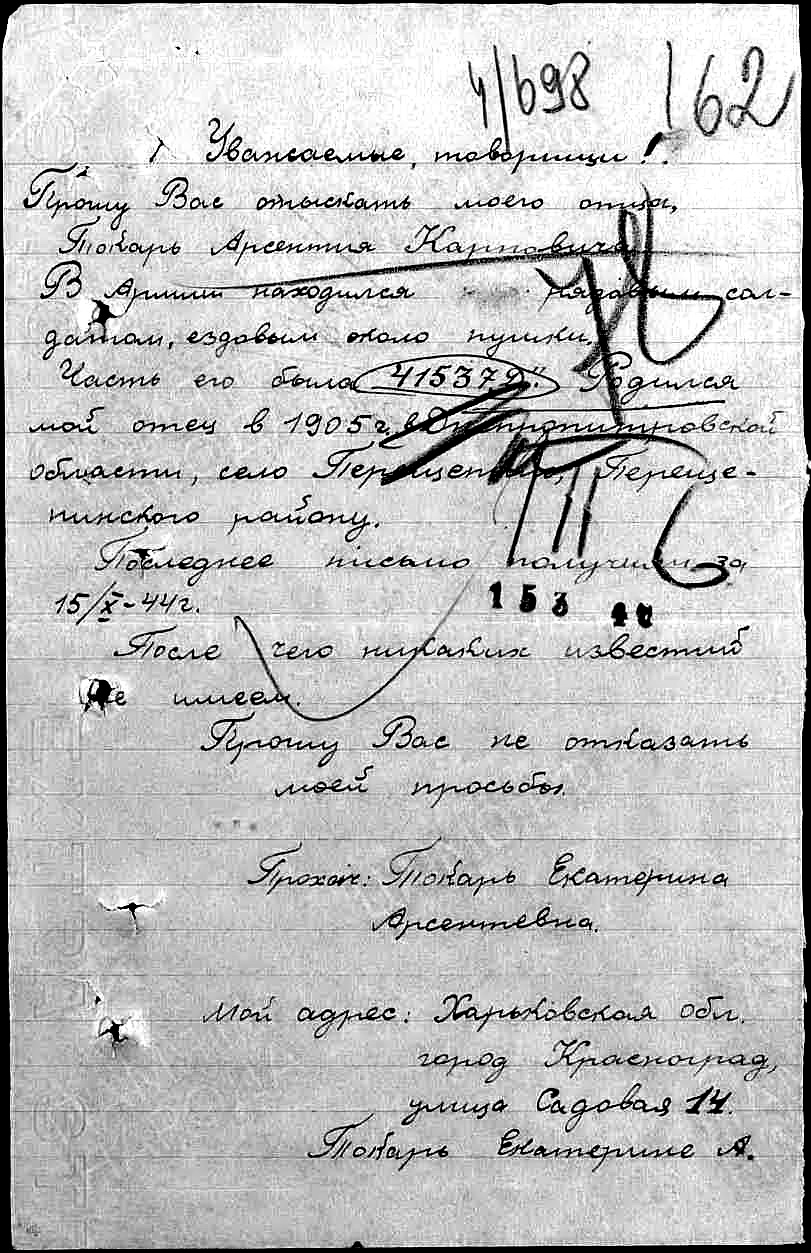 4/698 162
Уважаемые, товорищи!
Прошу Вас отыскать моего отца,
Токарь Арсентия Карповича
В Армии находился рядовым сол-
датом, ездовым около пушки,
Часть его была "41537д". Родился
мой отец в 1905 г, в Днепропитровской
области, село Перещепино, Переще-
пинского району.
Последнее письмо получили за
15/X-44 г.
После чего никаких известий
не имеем.
Прошу Вас не отказать
моей просьбы.
Прохач: Токарь Екатерина
Арсентевна.
Мой адрес: Харьковская обл.
город Красноград,
улица Садовая 14.
Токарь Екатерине А.